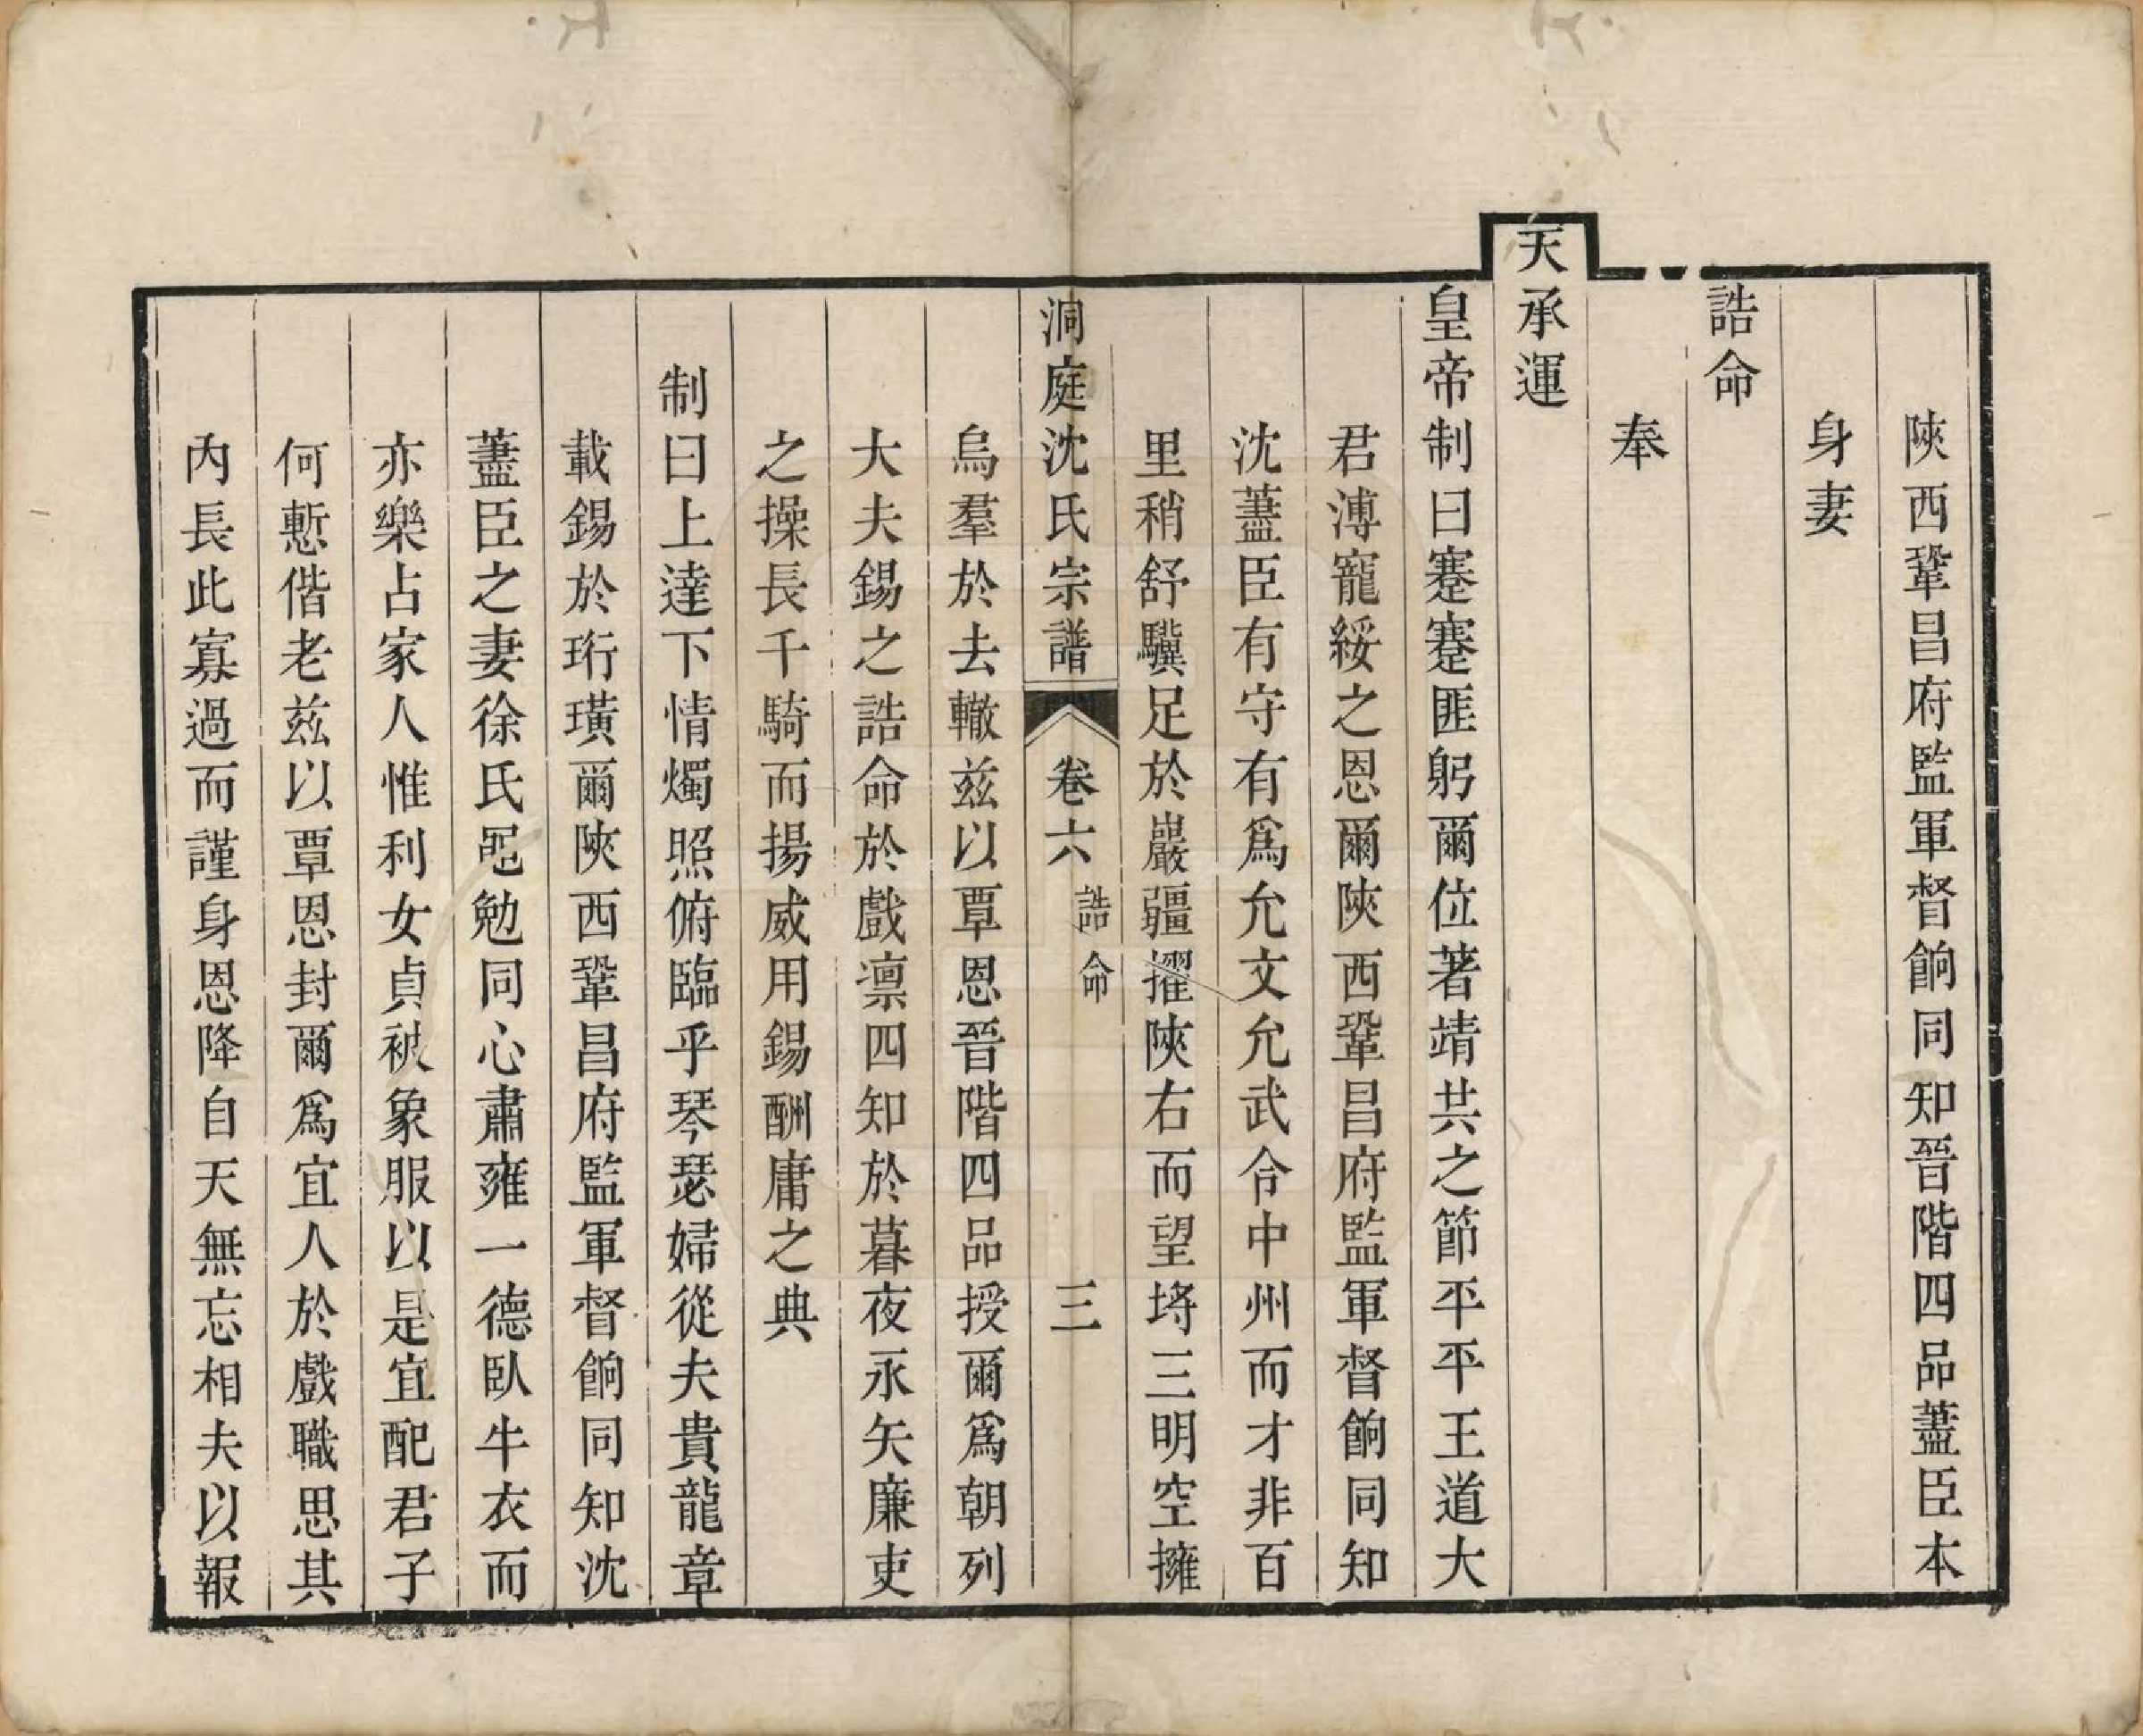 陝西鞏昌府監軍督餉同知晉階四品藎臣本
身妻
誥命
奉
天承運
皇帝制曰蹇蹇匪躬爾位著靖共之節平平王道大
君溥寵綏之恩爾陝西鞏昌府監軍督餉同知
沈藎臣有守有爲允文允武令中州而才非百
里稍舒驥足於巖疆擢陝右而望埓三明空擁
洞庭沈氏宗譜 卷六 誥命 三
烏羣於去轍兹以覃恩晉階四品授爾爲朝列
大夫錫之誥命於戲凛四知於暮夜永矢廉吏
之操長千騎而揚威用錫酬庸之典
制曰上達下情燭照俯臨乎琴瑟婦從夫貴龍章
載錫於珩璜爾陝西鞏昌府監軍督餉同知沈
藎臣之妻徐氏黽勉同心肅雍一德臥牛衣而
亦樂占家人惟利女貞被象服以是宜配君子
何慙偕老兹以覃恩封爾爲宜人於戲職思其
內長此寡過而謹身恩降自天無忘相夫以報